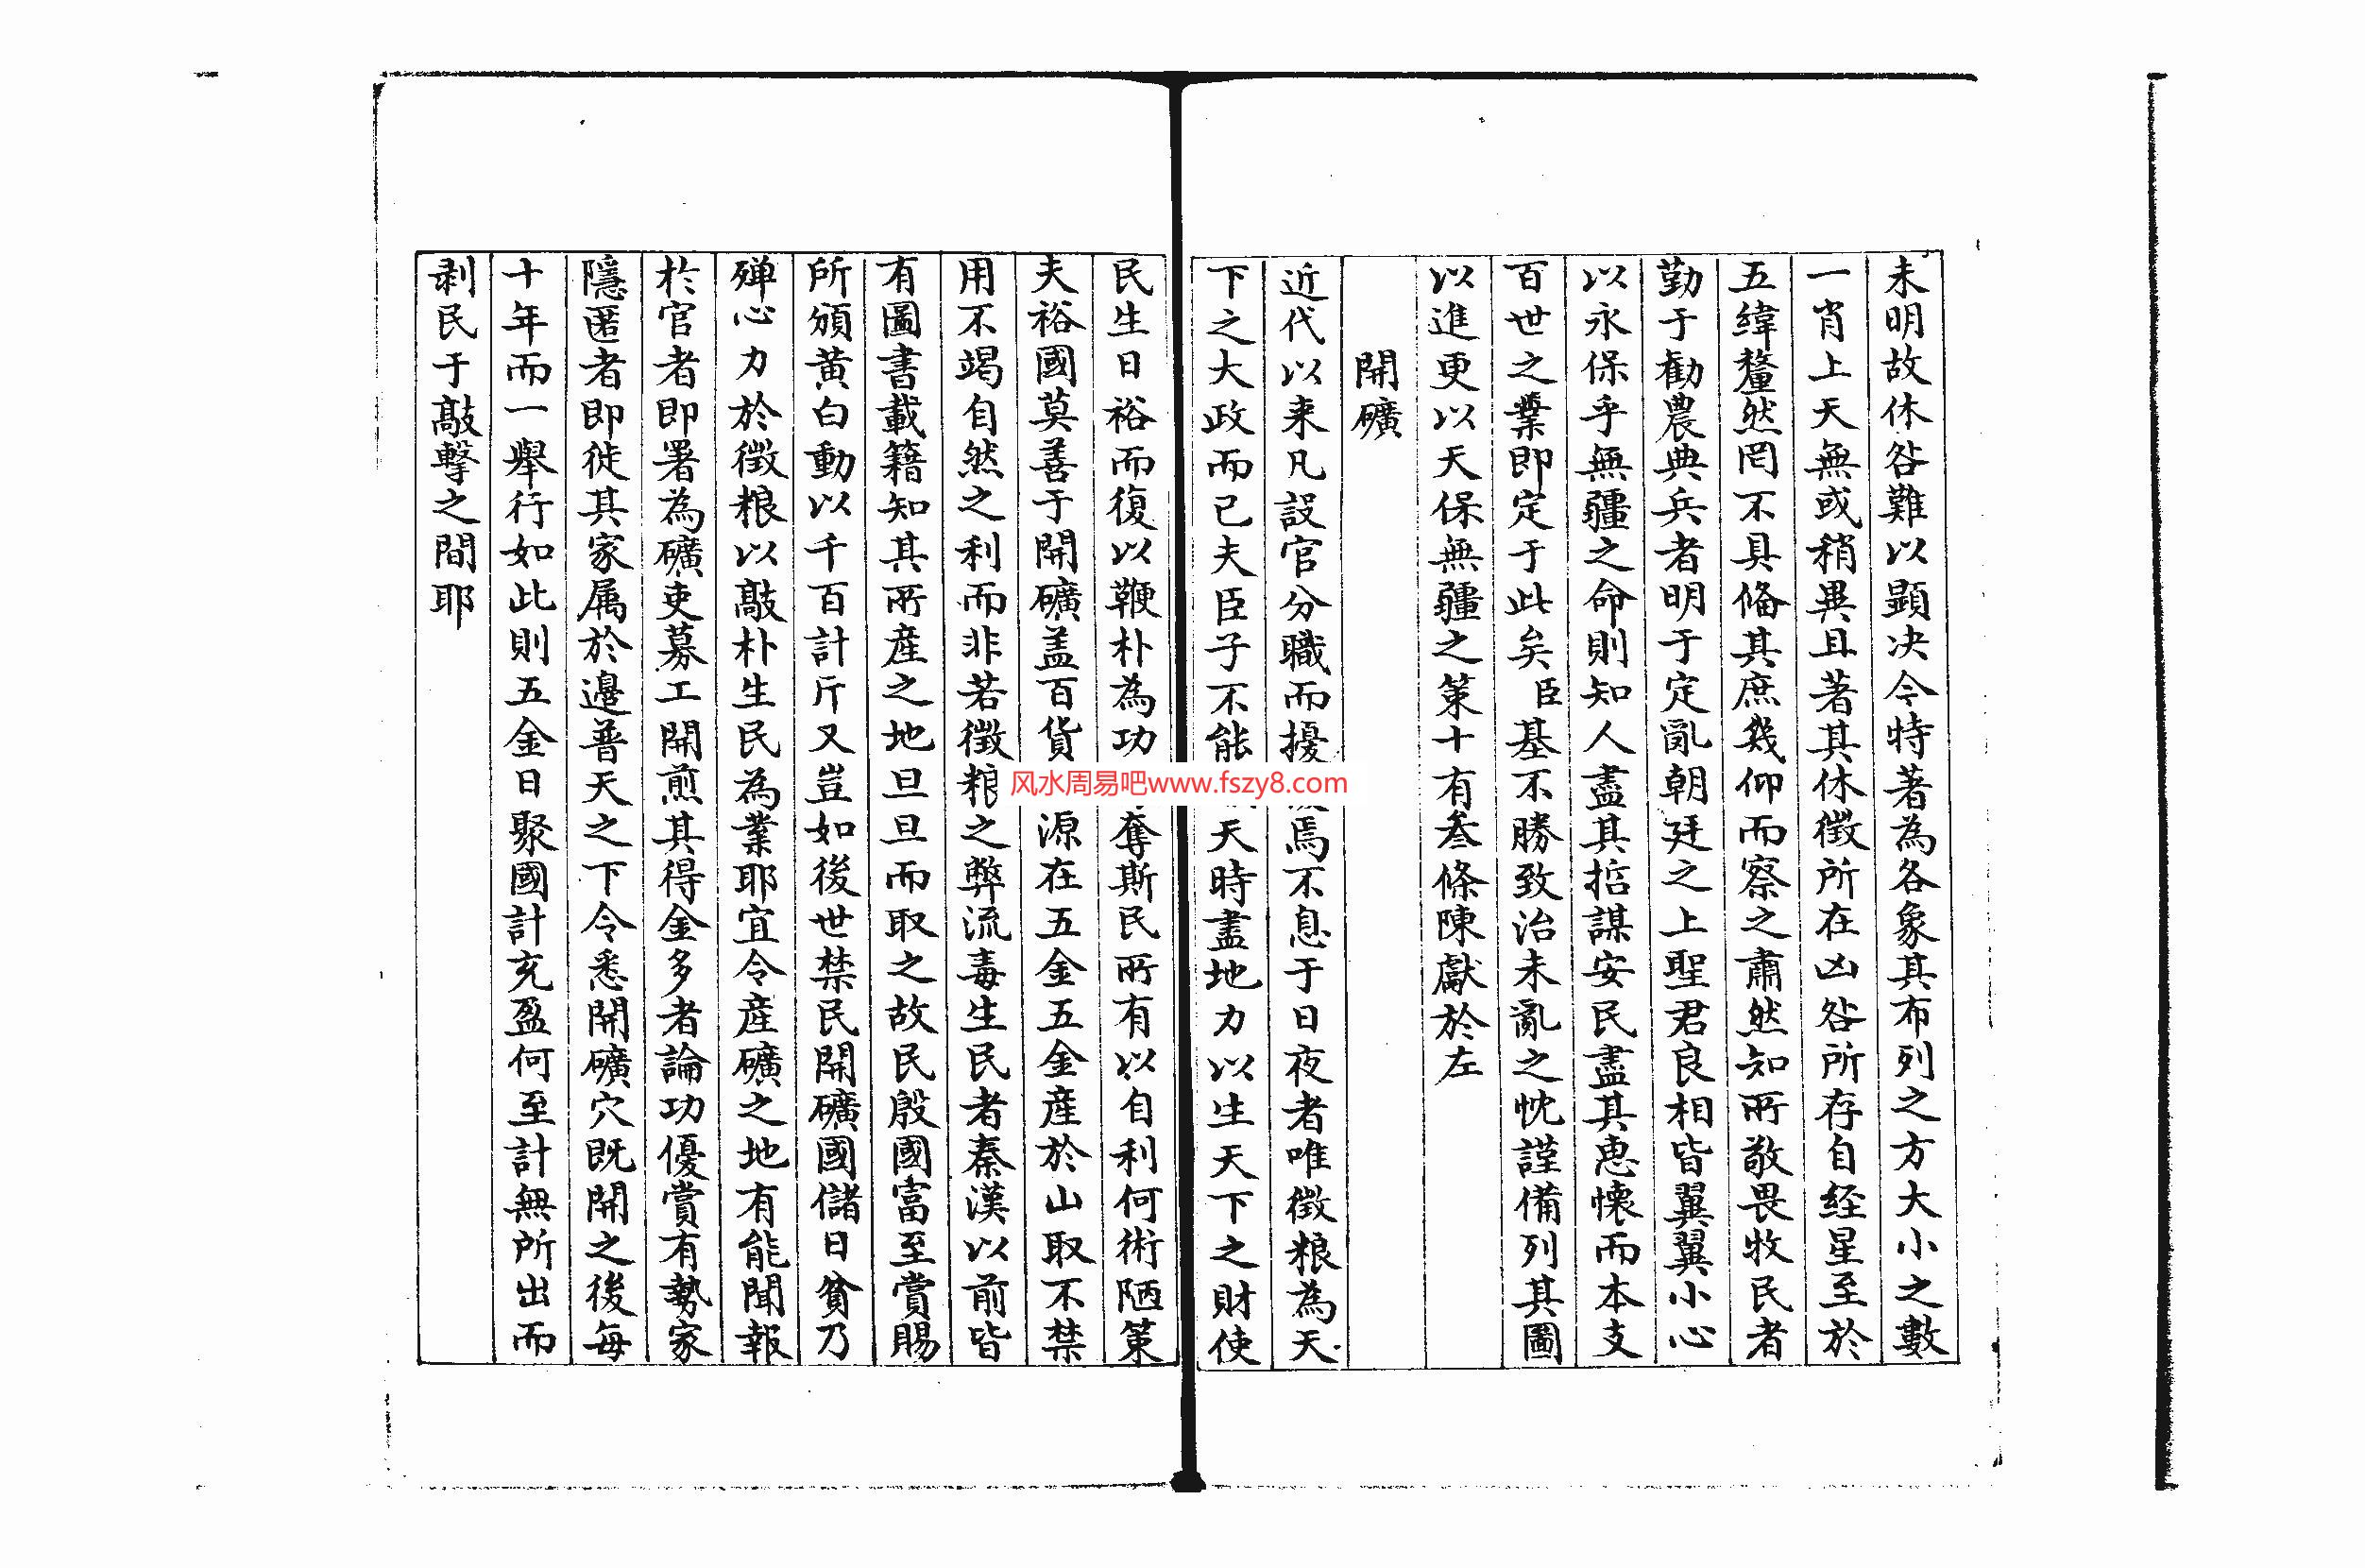 未明故休咎難以顕决今特著為各象其布列之方大小之數
一肖上天無或稍異且著其休徵所在凶咎所存自经星至於
五緯釐然罔不具俻其庶幾仰而察之肅然知所敬畏牧民者
勤于勸農典兵者明于定亂朝廷之上聖君良相皆翼翼小心
以永保乎無疆之命則知人盡其哲謀安民盡其恵懐而本支
百世之業即定于此矣臣基不勝致治未亂之忱謹備列其圖
以進更以天保無疆之策十有叁條陳獻於左
開礦
近代以来凡設官分職而擾焉不息于日夜者唯徵粮為天
下之大政而已夫臣子不能天時盡地力以生天下之財使
民生日裕而復以鞭朴為功奪斯民所有以自利何術陋策
夫裕國莫善于開礦盖百貨源在五金五金産於山取不禁
用不竭自然之利而非若徵粮之弊流毒生民者秦漢以前皆
有圖書載籍知其所産之地旦旦而取之故民殷國富至賞賜
所頒黄白動以千百計斤又豈如後世禁民開礦國儲日貧乃
殫心力於徵粮以敲朴生民為業耶宜令産礦之地有能聞報
於官者即署為礦吏募工開煎其得金多者論功優賞有勢家
隱匿者即徙其家属於邊普天之下令悉開礦穴既開之後每
十年而一舉行如此則五金日聚國計充盈何至計無所出而
剥民于敲擊之間耶
风水周易吧www.fszy8.com